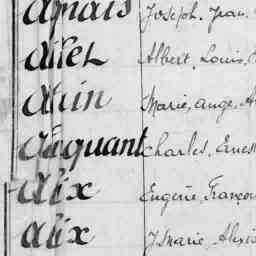 Agnais Joseph. Jean.
Allet Albert, Louis,
Alain Marie, ange, A
Aliquant Charles, Ernes
Alix Eugène, Françoi
Alix J Marie, Alexis